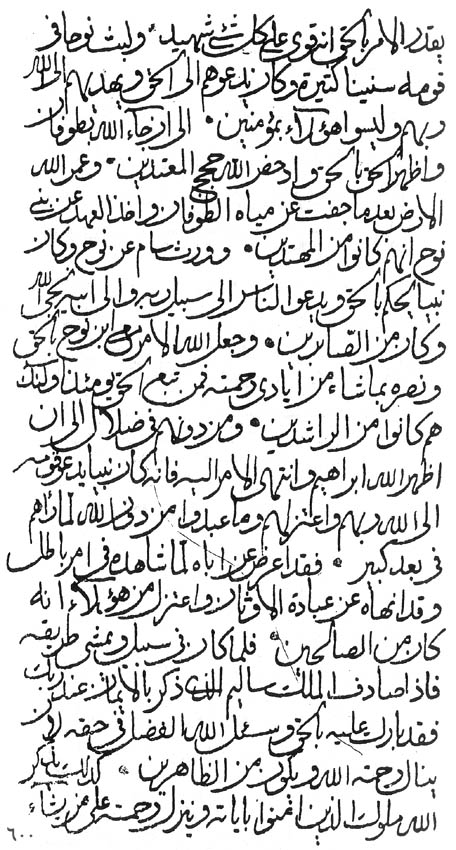 يقدر الامر بالحق انه قوى على كل شئ شهيد • ولبث نوحا فى
قومه سنينا كثيرة وكان يدعوهم الى الحق ويهديهم الى الله
ربهم وليسوا هؤلاء بمؤمنين • الى ان جاء الله بطوفان
واظهر الحق بالحق واد حض الله حجج المعتدين • وعمر الله
الارض بعد ما جفت عن مياه الطوفان واخذ العهد عن بنى
نوح انهم كانوا من المهتدين • وورث سام عن نوح وكان
نبيا يحكم بالحق ويدعو الناس الى سبيل ربه والى اسم الحق الله
وكان من الصابرين • وجعل الله الامر مع ابن نوح بالحق
ونصره بماشاء من ايادى رحمته فمن تبع الحق يومئذ اولئك
هم كانوا من الراشدين • ومن دونهم فى ضلال الى ان
اظهر الله ابراهيم وانتهى الامر اليه فانه كان نبيا يدعو قومه
الى الله ربهم واعتزلهم وما عبدوا من دون الله لما راهم
فى بعد كبير • فقد اعرض عن اباه لما شاهده فى امر باطل
وقد انهاه عن عبادة الاوثان واعتزل من هؤلاء انه
كان من الصالحين • فلما كان فى سبيل ويمشى طريقه
فاذا صادف الملك ساليم الذى ذكر بالايمان عند ربك
فقد بارك عليه بالحق وسئل الله الفضل فى حقه لان
ينال رحمته الله ويكون من الظاهرين • كذلك يذكر
الله ملوك الذين ائمنوا باياته وينزل رحمته على من يشاء
٦٠٠